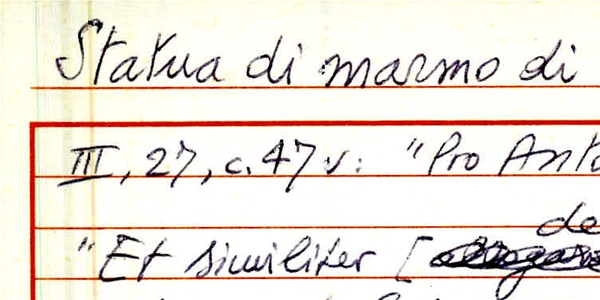 Statua di marmo di
III, 27, c. 47 v: "Pro Anto
de
"Et similiter [